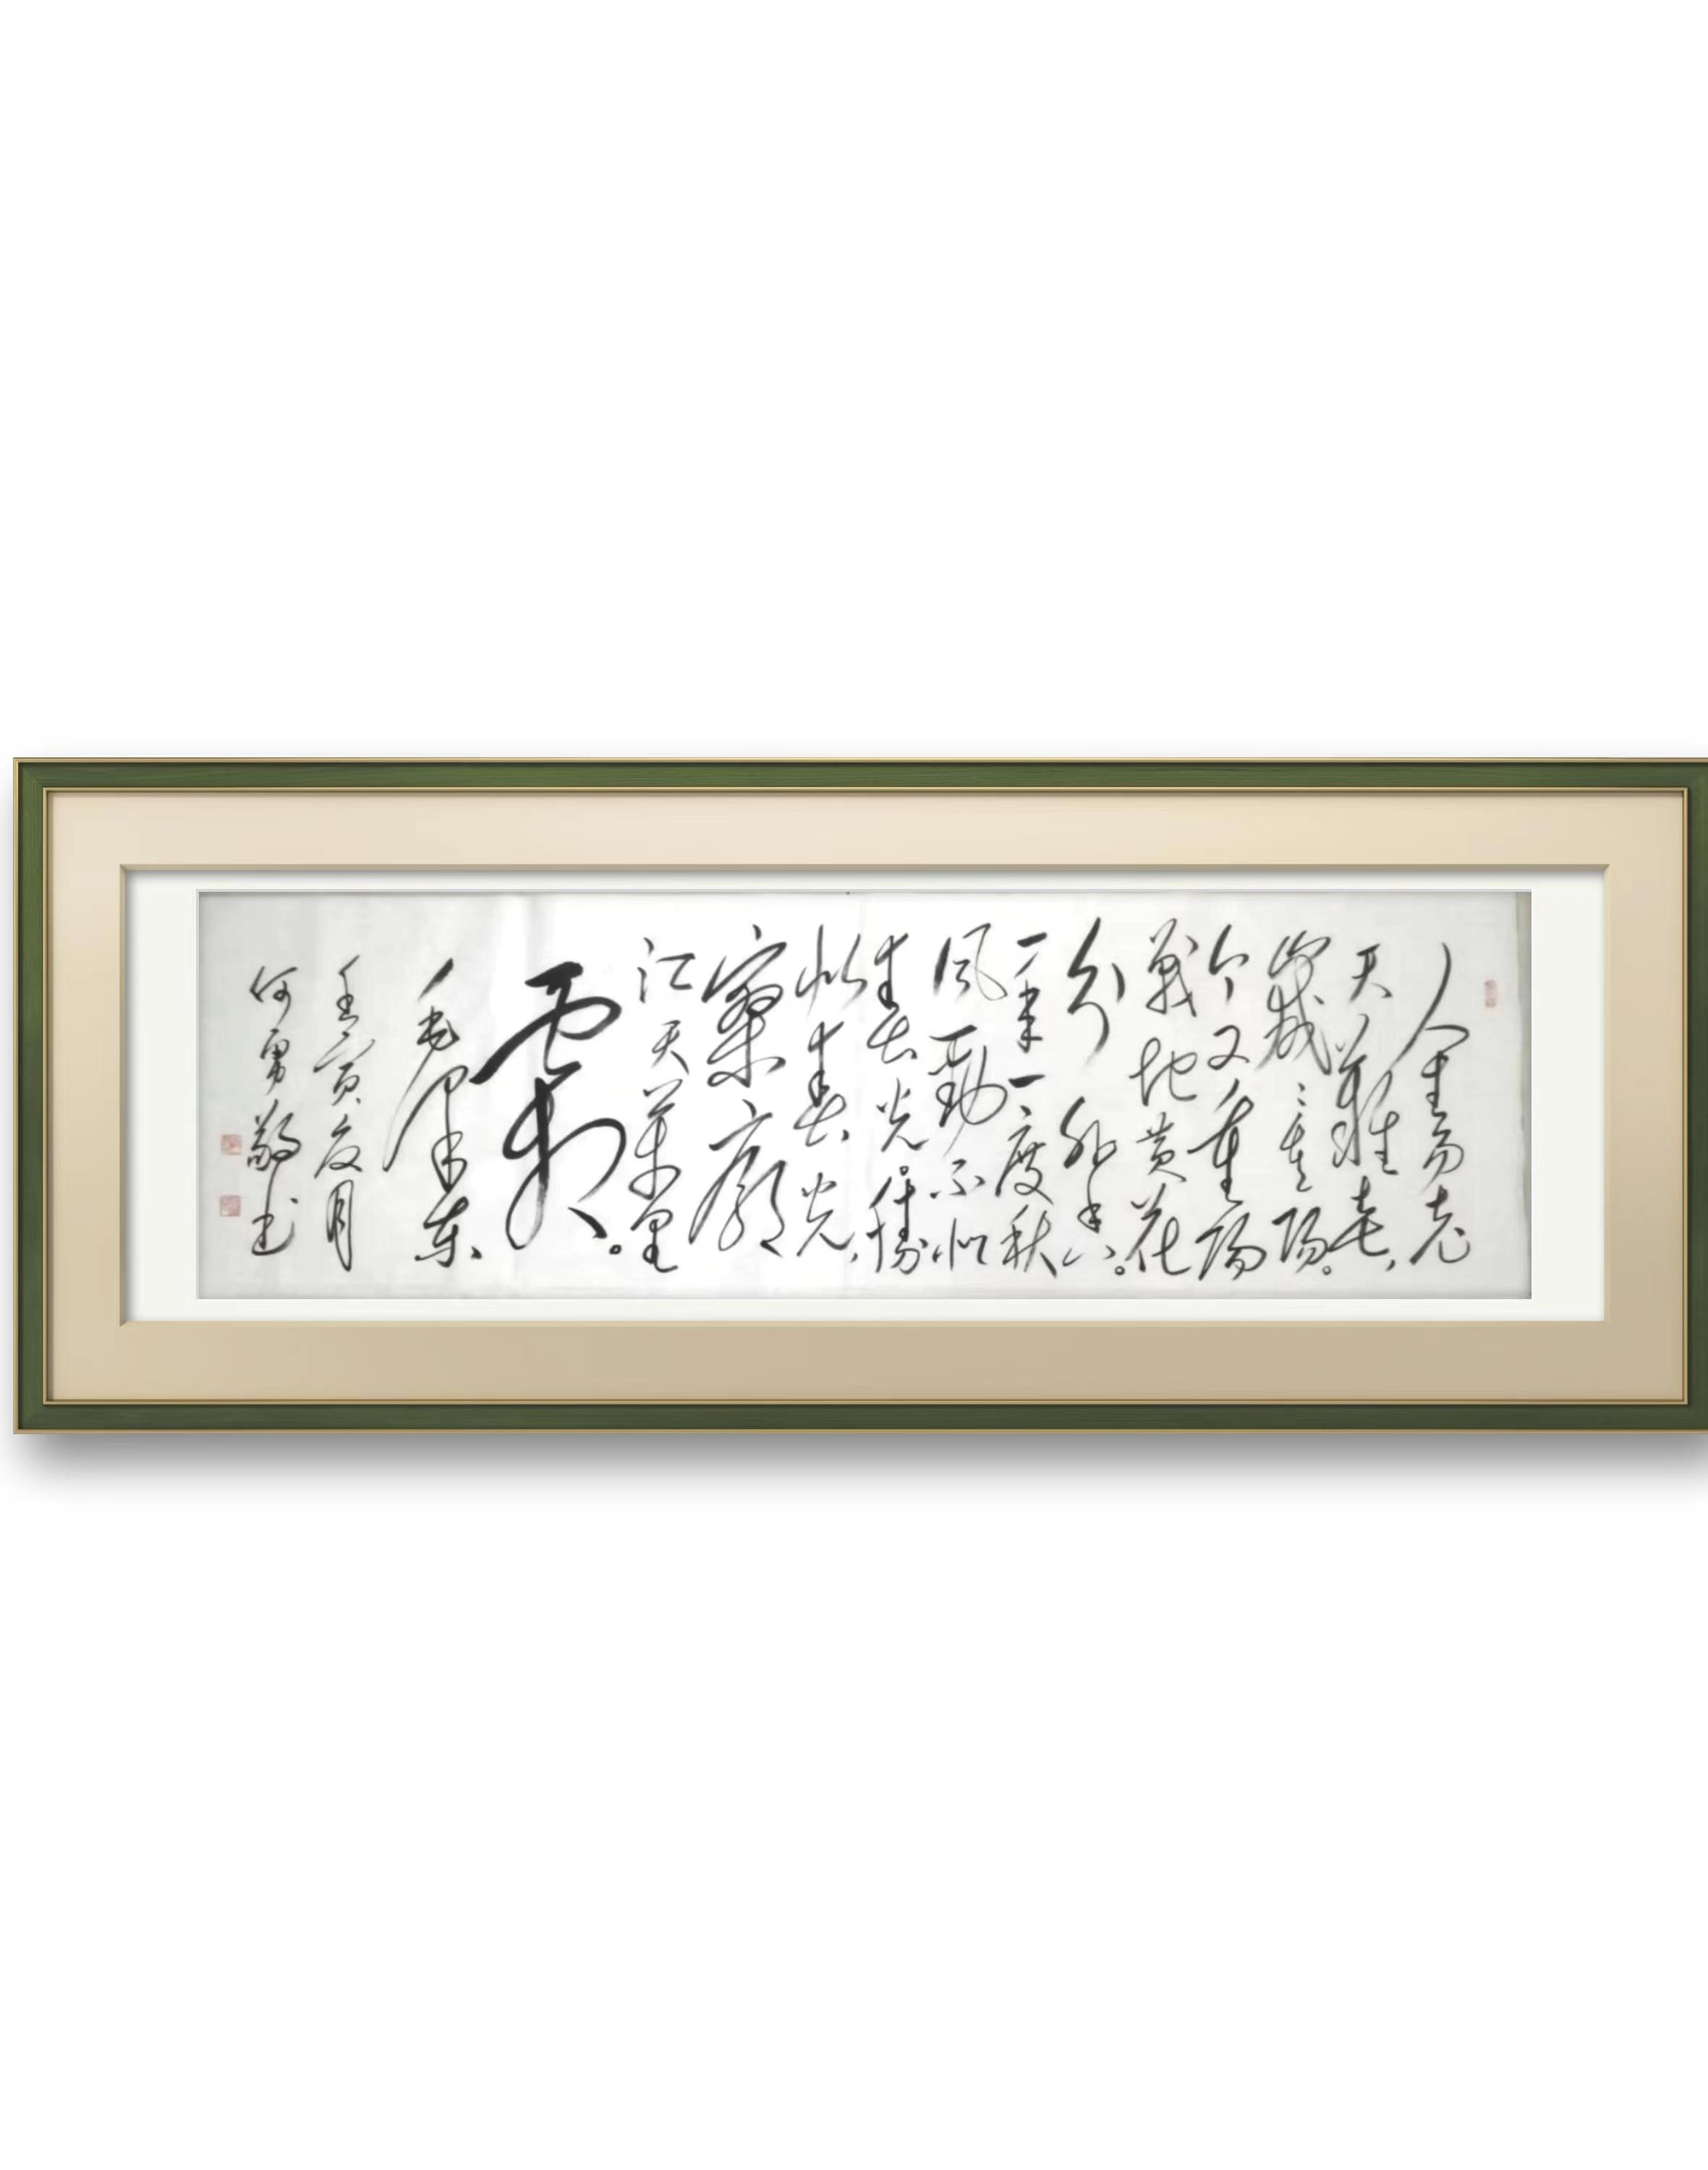 人生易老
天難老,
歲々重陽。
今又重陽
戰地黄花
分外香。
一年一度秋
風勁不似
春光。勝
似春光,
寥廓
江天萬里
霜。
毛澤东
壬寅夏月
何勇敬书